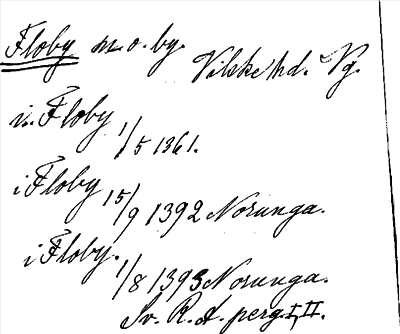 Floby sn. o. by. Vilske hd. Vg.
i Floby 1/5 1361.
i Floby 15/9 1392 Norunga.
i Floby. 1/8 1393 Norunga.
Sv. R. A. perg. I, II.